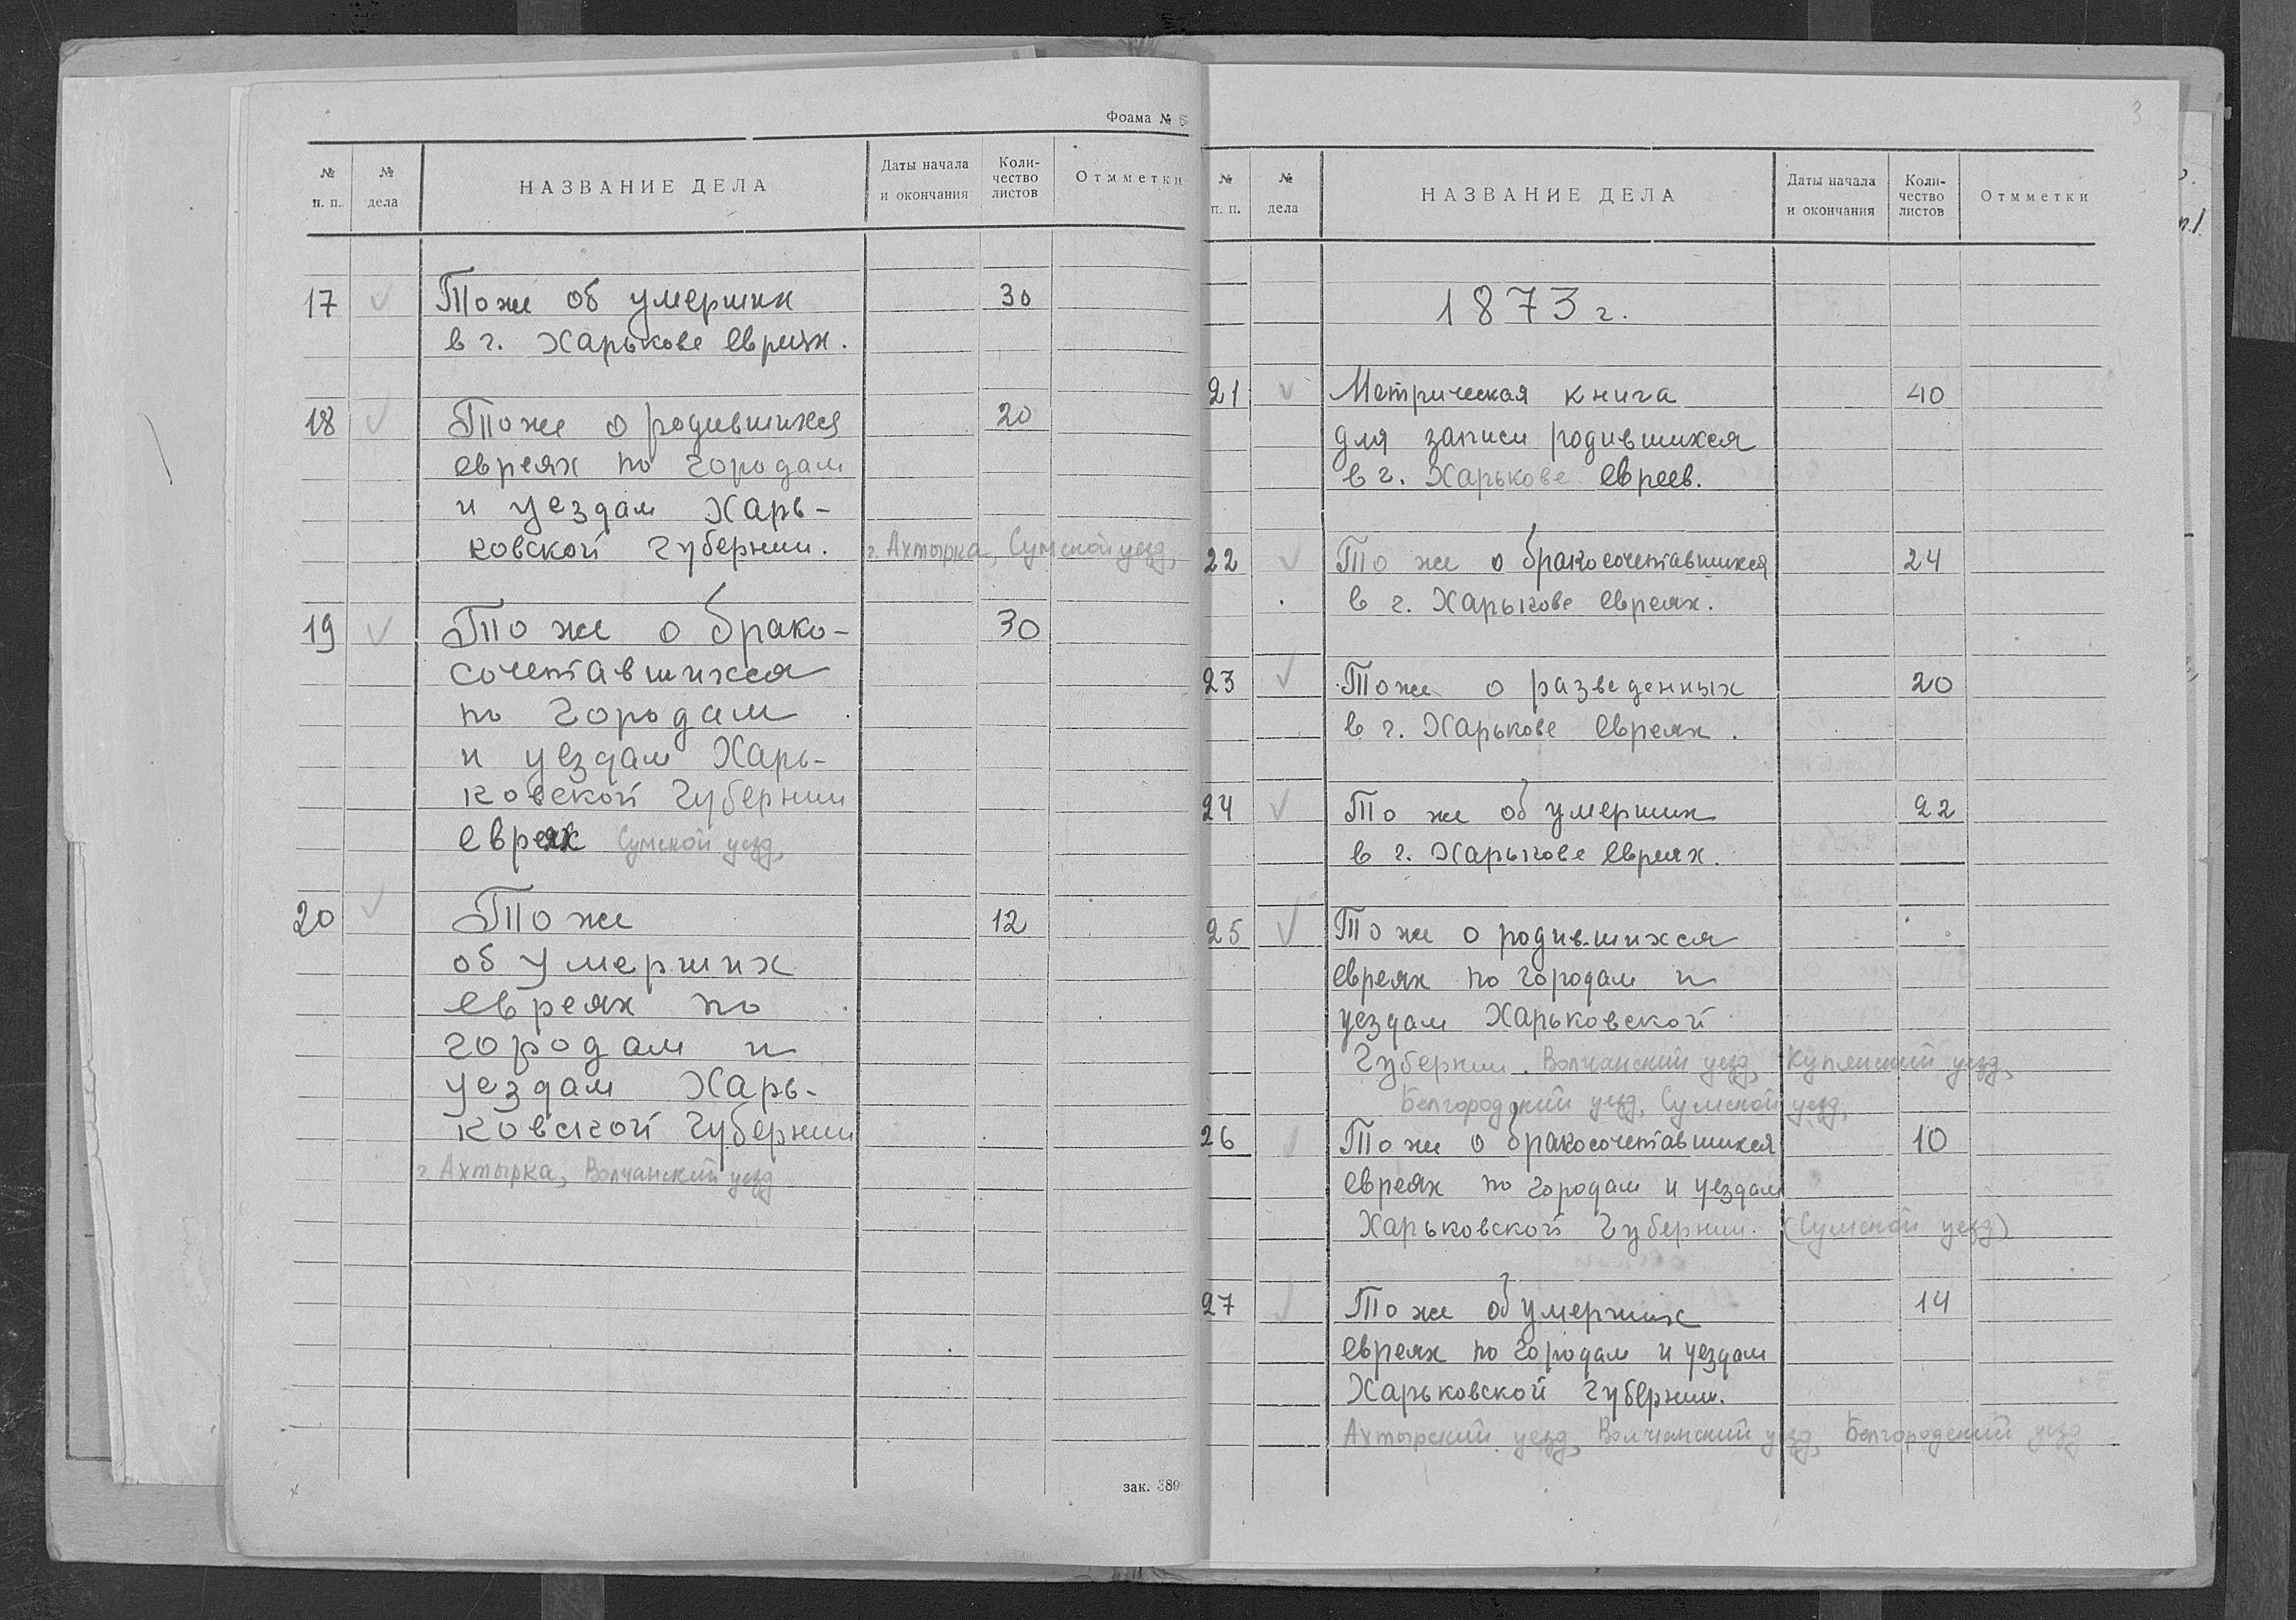 Фоама № 6
№ п. п.
№ дела
НАЗВАНИЕ ДЕЛА
Даты начала и окончания
Коли-чество листов
Отмметки
17 Тоже об умерших 30
в г. Харькове евреях.
18 Тоже о родившихся 20
евреях по городам
и уездам Харь-
ковской губернии. г. Ахтырка, Сумской уезд,
19 То же о брако- 30
сочетавшихся
по городам
и уездам Харь-
ковской губернии
евреях Сумской уезд,
20 То же 12
об умерших
евреях по
городам и
уездам Харь-
ковской губернии
г. Ахтырка, Волчанский уезд
зак. 389
3
№ п. п.
№ дела
НАЗВАНИЕ ДЕЛА
Даты начала и окончания
Коли-чество листов
Отмметки
1873 г.
21 Метрическая книга 40
для записи родившихся
в г. Харькове евреев.
22 То же о бракосочетавшихся 24
в г. Харькове евреях.
23 Тоже о разведенных 20
в г. Харькове евреях.
24 То же об умерших 22
в г. Харькове евреях.
25 То же о родившихся
евреях по городам и
уездам Харьковской
губернии. Волчанский уезд, Купянский уезд,
Белгородский уезд, Сумской уезд,
26 То же о бракосочетавшихся 10
евреях по городам и уездам
Харьковской губернии. (Сумской уезд)
27 То же об умерших 14
евреях по городам и уездам
Харьковской губернии.
Ахтырский уезд, Волчанский уезд, Белгородский уезд